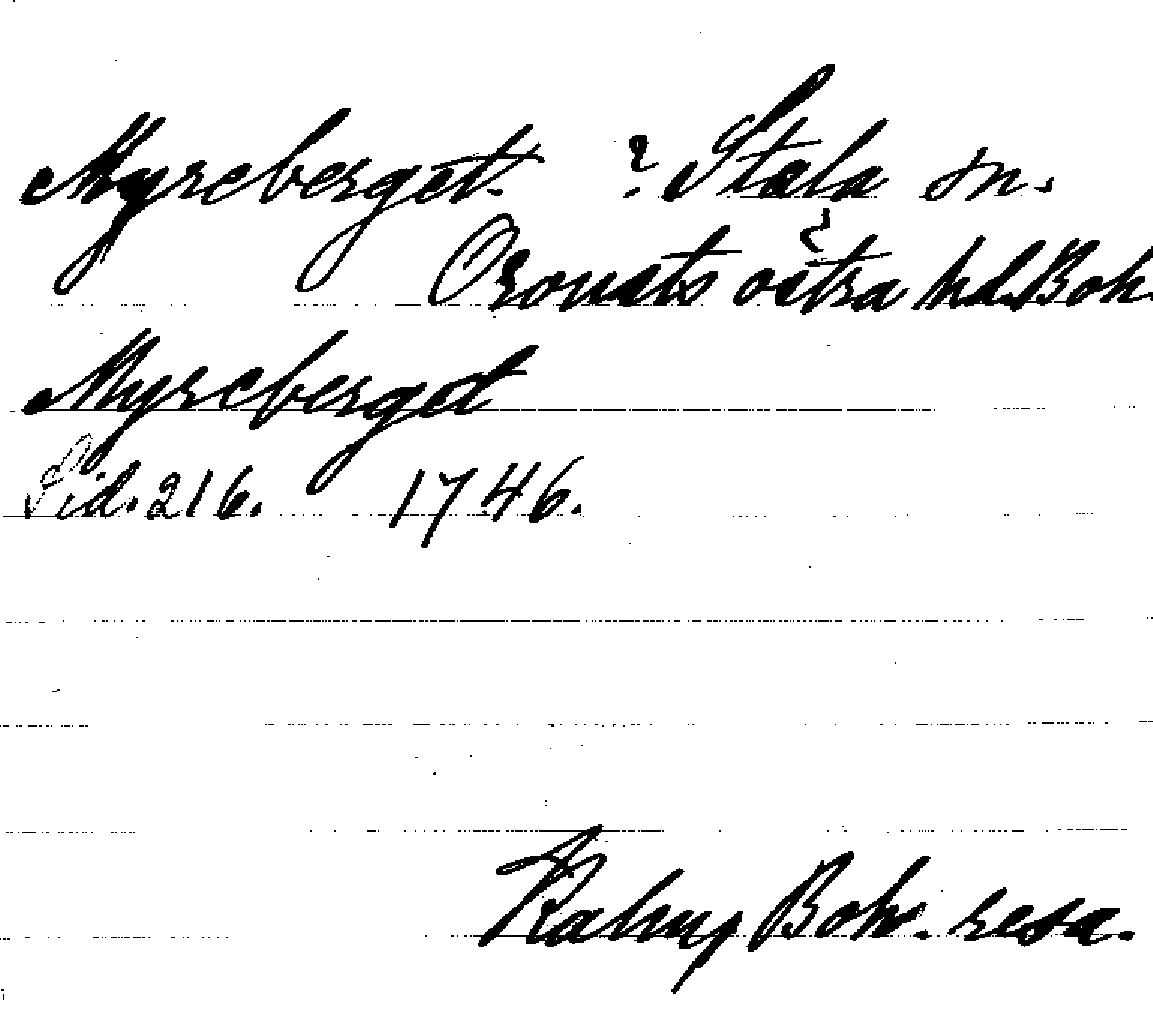 Myreberget. ? Stala sn.
Orousts östra hd. Boh.
Myreberget
Sid. 216. 1746.
Kalm, Boh. resa.